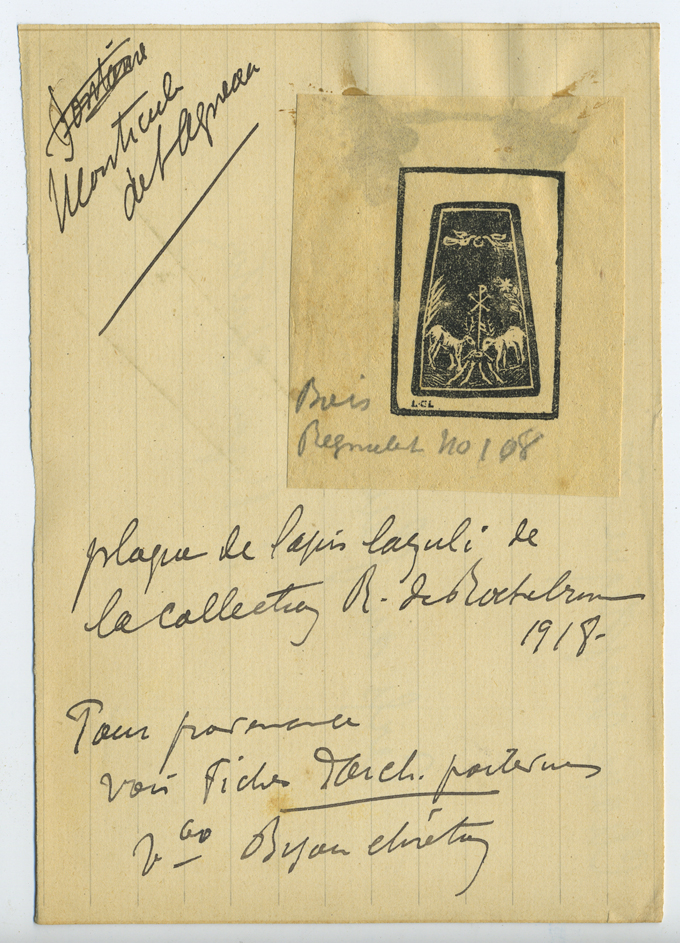 Fontaine
Monticule
de l'Agneau
L-C-L
Bois
Regnulet no 108
plaque de lapis lazuli de
la collection R. de Rochebrune
1918-
Pour provenance
voir Fiches d'arch.
v° Bijou chrétien